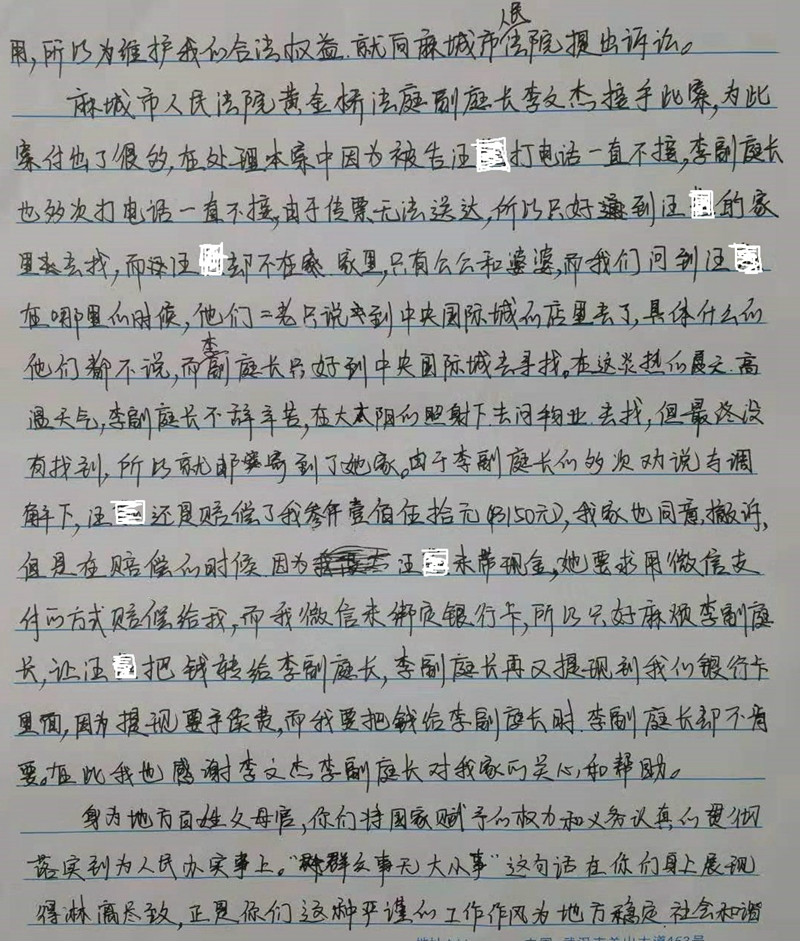 用,所以为维护我们合法权益.就向麻城市人民法院提出诉讼。
麻城市人民法院黄金桥法庭副庭长李文杰接手此案,为此
案付出了很多,在处理本案中因为被告汪打电话一直不接,李副庭长
也多次打电话一直不接,由于传票无法送达,所以只好到汪的家
里去找,而汪却不在家里,只有公公和婆婆,而我们问到汪
在哪里的时候,他们二老只说到中央国际城的店里去了,具体什么的
他们都不说,而李副庭长只好到中央国际城去寻找。在这炎热的夏天.高
温天气,李副庭长不辞辛苦,在大太阳的照射下去问物业.去找,但最终没
有找到,所以就邮寄到了她家。由于李副庭长的多次劝说与调
解下,汪还是赔偿了我叁仟壹佰伍拾元(3150元),我家也同意撤诉,
但是在赔偿的时候因为汪未带现金,她要求用微信支
付的方式赔偿给我,而我微信未绑定银行卡,所以只好麻烦李副庭
长,让汪把钱转给李副庭长,李副庭长再又提现到我们银行卡
里面,因为提现要手续费,而我要把钱给李副庭长时.李副庭长却不肯
要。在此我也感谢李文杰李副庭长对我家的关心和帮助。
身为地方百姓父母官,你们将国家赋予的权力和义务认真的贯彻
落实到为人民办实事上。“群众事无大小事”这句话在你们身上展现
得淋漓尽致,正是你们这种严谨的工作作风为地方稳定.社会和谐